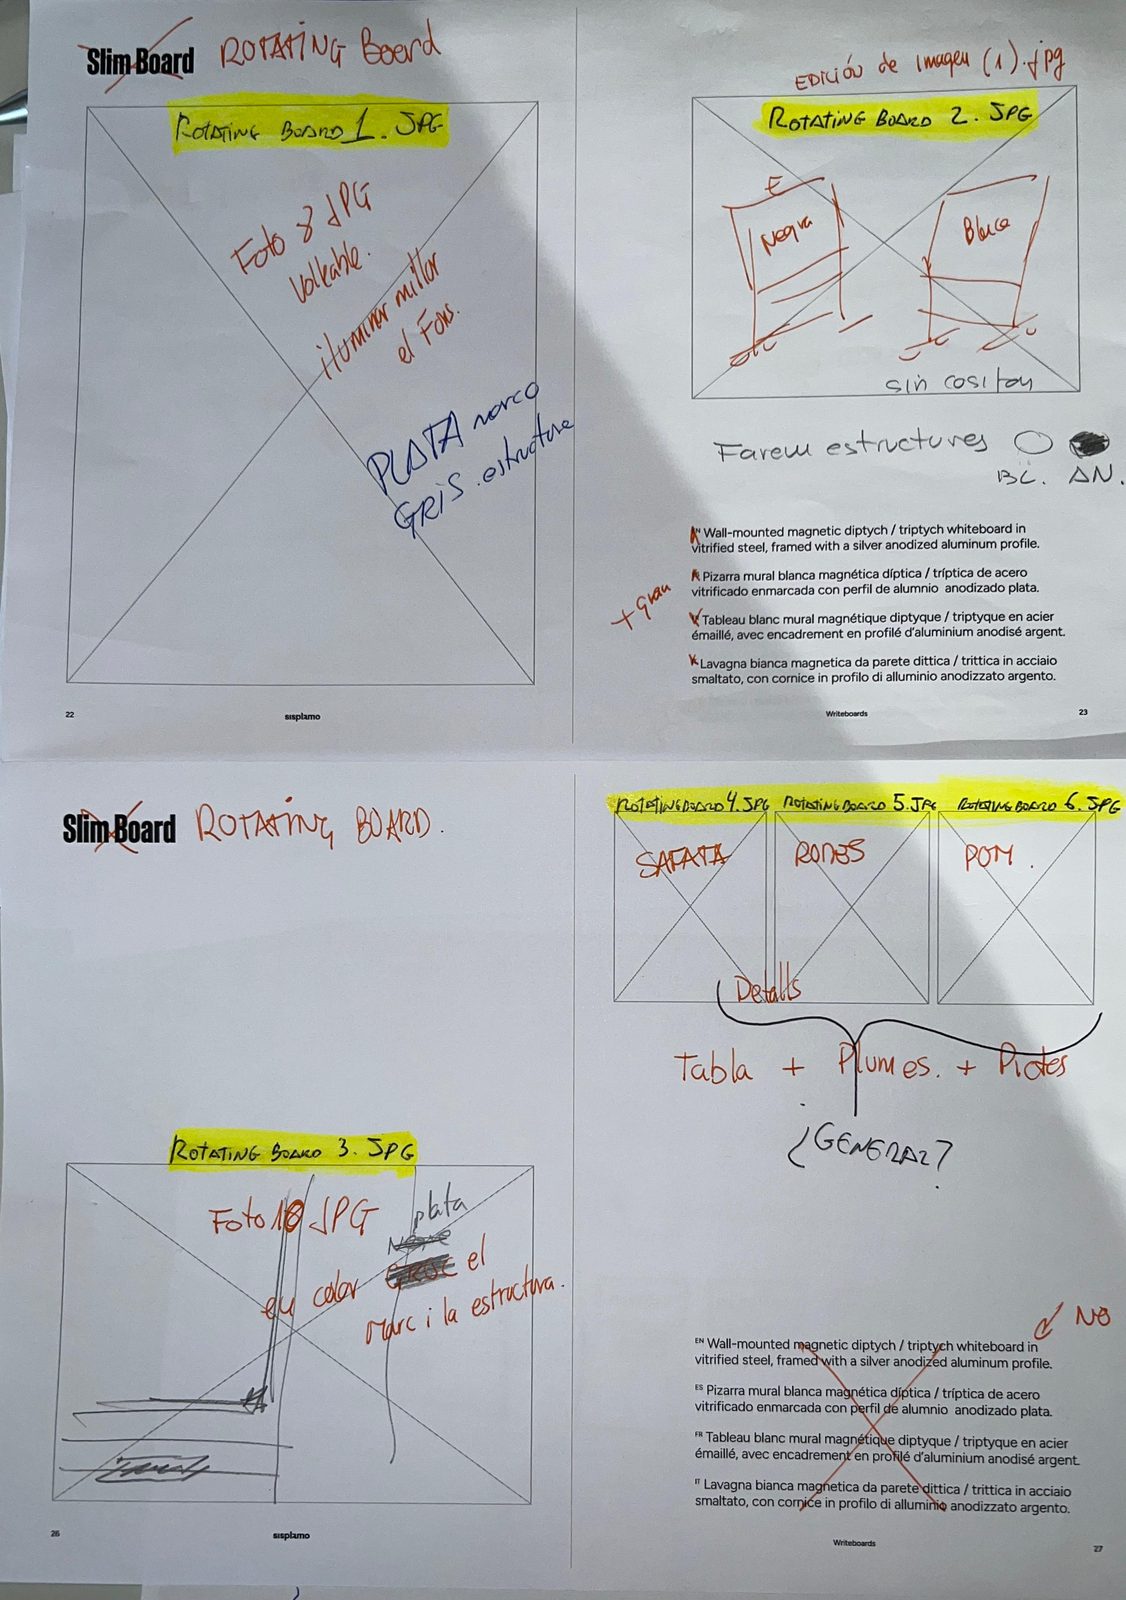 Slim Board ROTATING Board
ROTATING BOARD 1. JPG
Foto 8 JPG
Volkable.
iluminar millor
el Fons.
PLATA marco
GRIS estructura
EDICIÓN de imagen (1).jpg
ROTATING BOARD 2. JPG
Negra
Blanca
sin cositas
Farem estructures
BL. AN.
+ gran
EN Wall-mounted magnetic diptych / triptych whiteboard in
vitrified steel, framed with a silver anodized aluminum profile.
Pizarra mural blanca magnética díptica / tríptica de acero
vitrificado enmarcada con perfil de alumnio anodizado plata.
Tableau blanc mural magnétique diptyque / triptyque en acier
émaillé, avec encadrement en profilé d'aluminium anodisé argent.
Lavagna bianca magnetica da parete dittica / trittica in acciaio
smaltato, con cornice in profilo di alluminio anodizzato argento.
22
sisplamo
Writeboards
23
Slim Board ROTATING BOARD.
ROTATING BOARD 3. JPG
Foto 18 JPG
plata
en color el
Marc i la estructura.
26
sisplamo
ROTATING BOARD 4. JPG ROTATING BOARD 5. JPG ROTATING BOARD 6. JPG
SAFATA RODES POM.
Detalls
Tabla + Plumes. + Piotes
¿GENERAL?
NO
EN Wall-mounted magnetic diptych / triptych whiteboard in
vitrified steel, framed with a silver anodized aluminum profile.
ES Pizarra mural blanca magnética díptica / tríptica de acero
vitrificado enmarcada con perfil de alumnio anodizado plata.
FR Tableau blanc mural magnétique diptyque / triptyque en acier
émaillé, avec encadrement en profilé d'aluminium anodisé argent.
IT Lavagna bianca magnetica da parete dittica / trittica in acciaio
smaltato, con cornice in profilo di alluminio anodizzato argento.
Writeboards
27